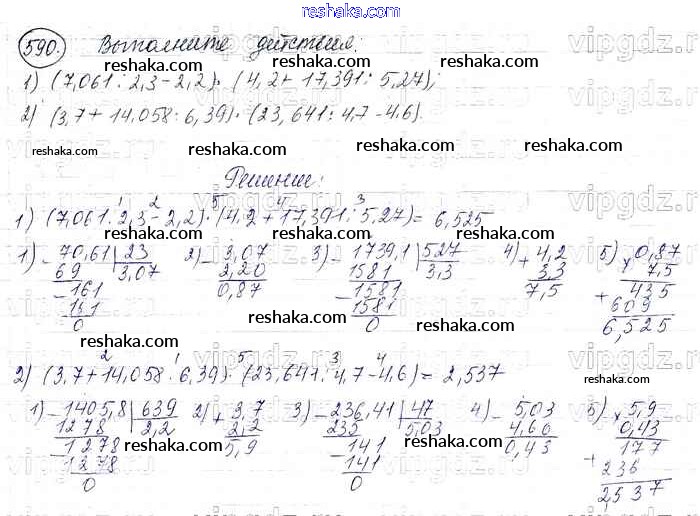 reshaka.com
590. Выполните действия:
1) (7,061 : 2,3 - 2,2) · (4,2 + 17,391 : 5,27);
2) (3,7 + 14,058 : 6,39) · (23,641 : 4,7 - 4,6).
reshaka.com reshaka.com reshaka.com reshaka.com
Решение:
1 2 5 4 3
1) (7,061 : 2,3 - 2,2) · (4,2 + 17,391 : 5,27) = 6,525
1) - 70,61 | 23 2) - 3,07 3) - 1739,1 | 527 4) + 4,2 5) x 0,87
69 3,07 2,20 1581 3,3 3,3 7,5
- 161 0,87 - 1581 7,5 + 435
161 1581 609
0 0 6,525
reshaka.com reshaka.com
2 1 5 3 4
2) (3,7 + 14,058 : 6,39) · (23,641 : 4,7 - 4,6) = 2,537
reshaka.com
1) - 1405,8 | 639 2) + 3,7 3) - 236,41 | 47 4) - 5,03 5) x 5,9
1278 2,2 2,2 235 5,03 4,60 0,43
- 1278 5,9 - 141 0,43 177
1278 141 + 236
0 0 2,537
reshaka.com reshaka.com reshaka.com
vipgdz.ru